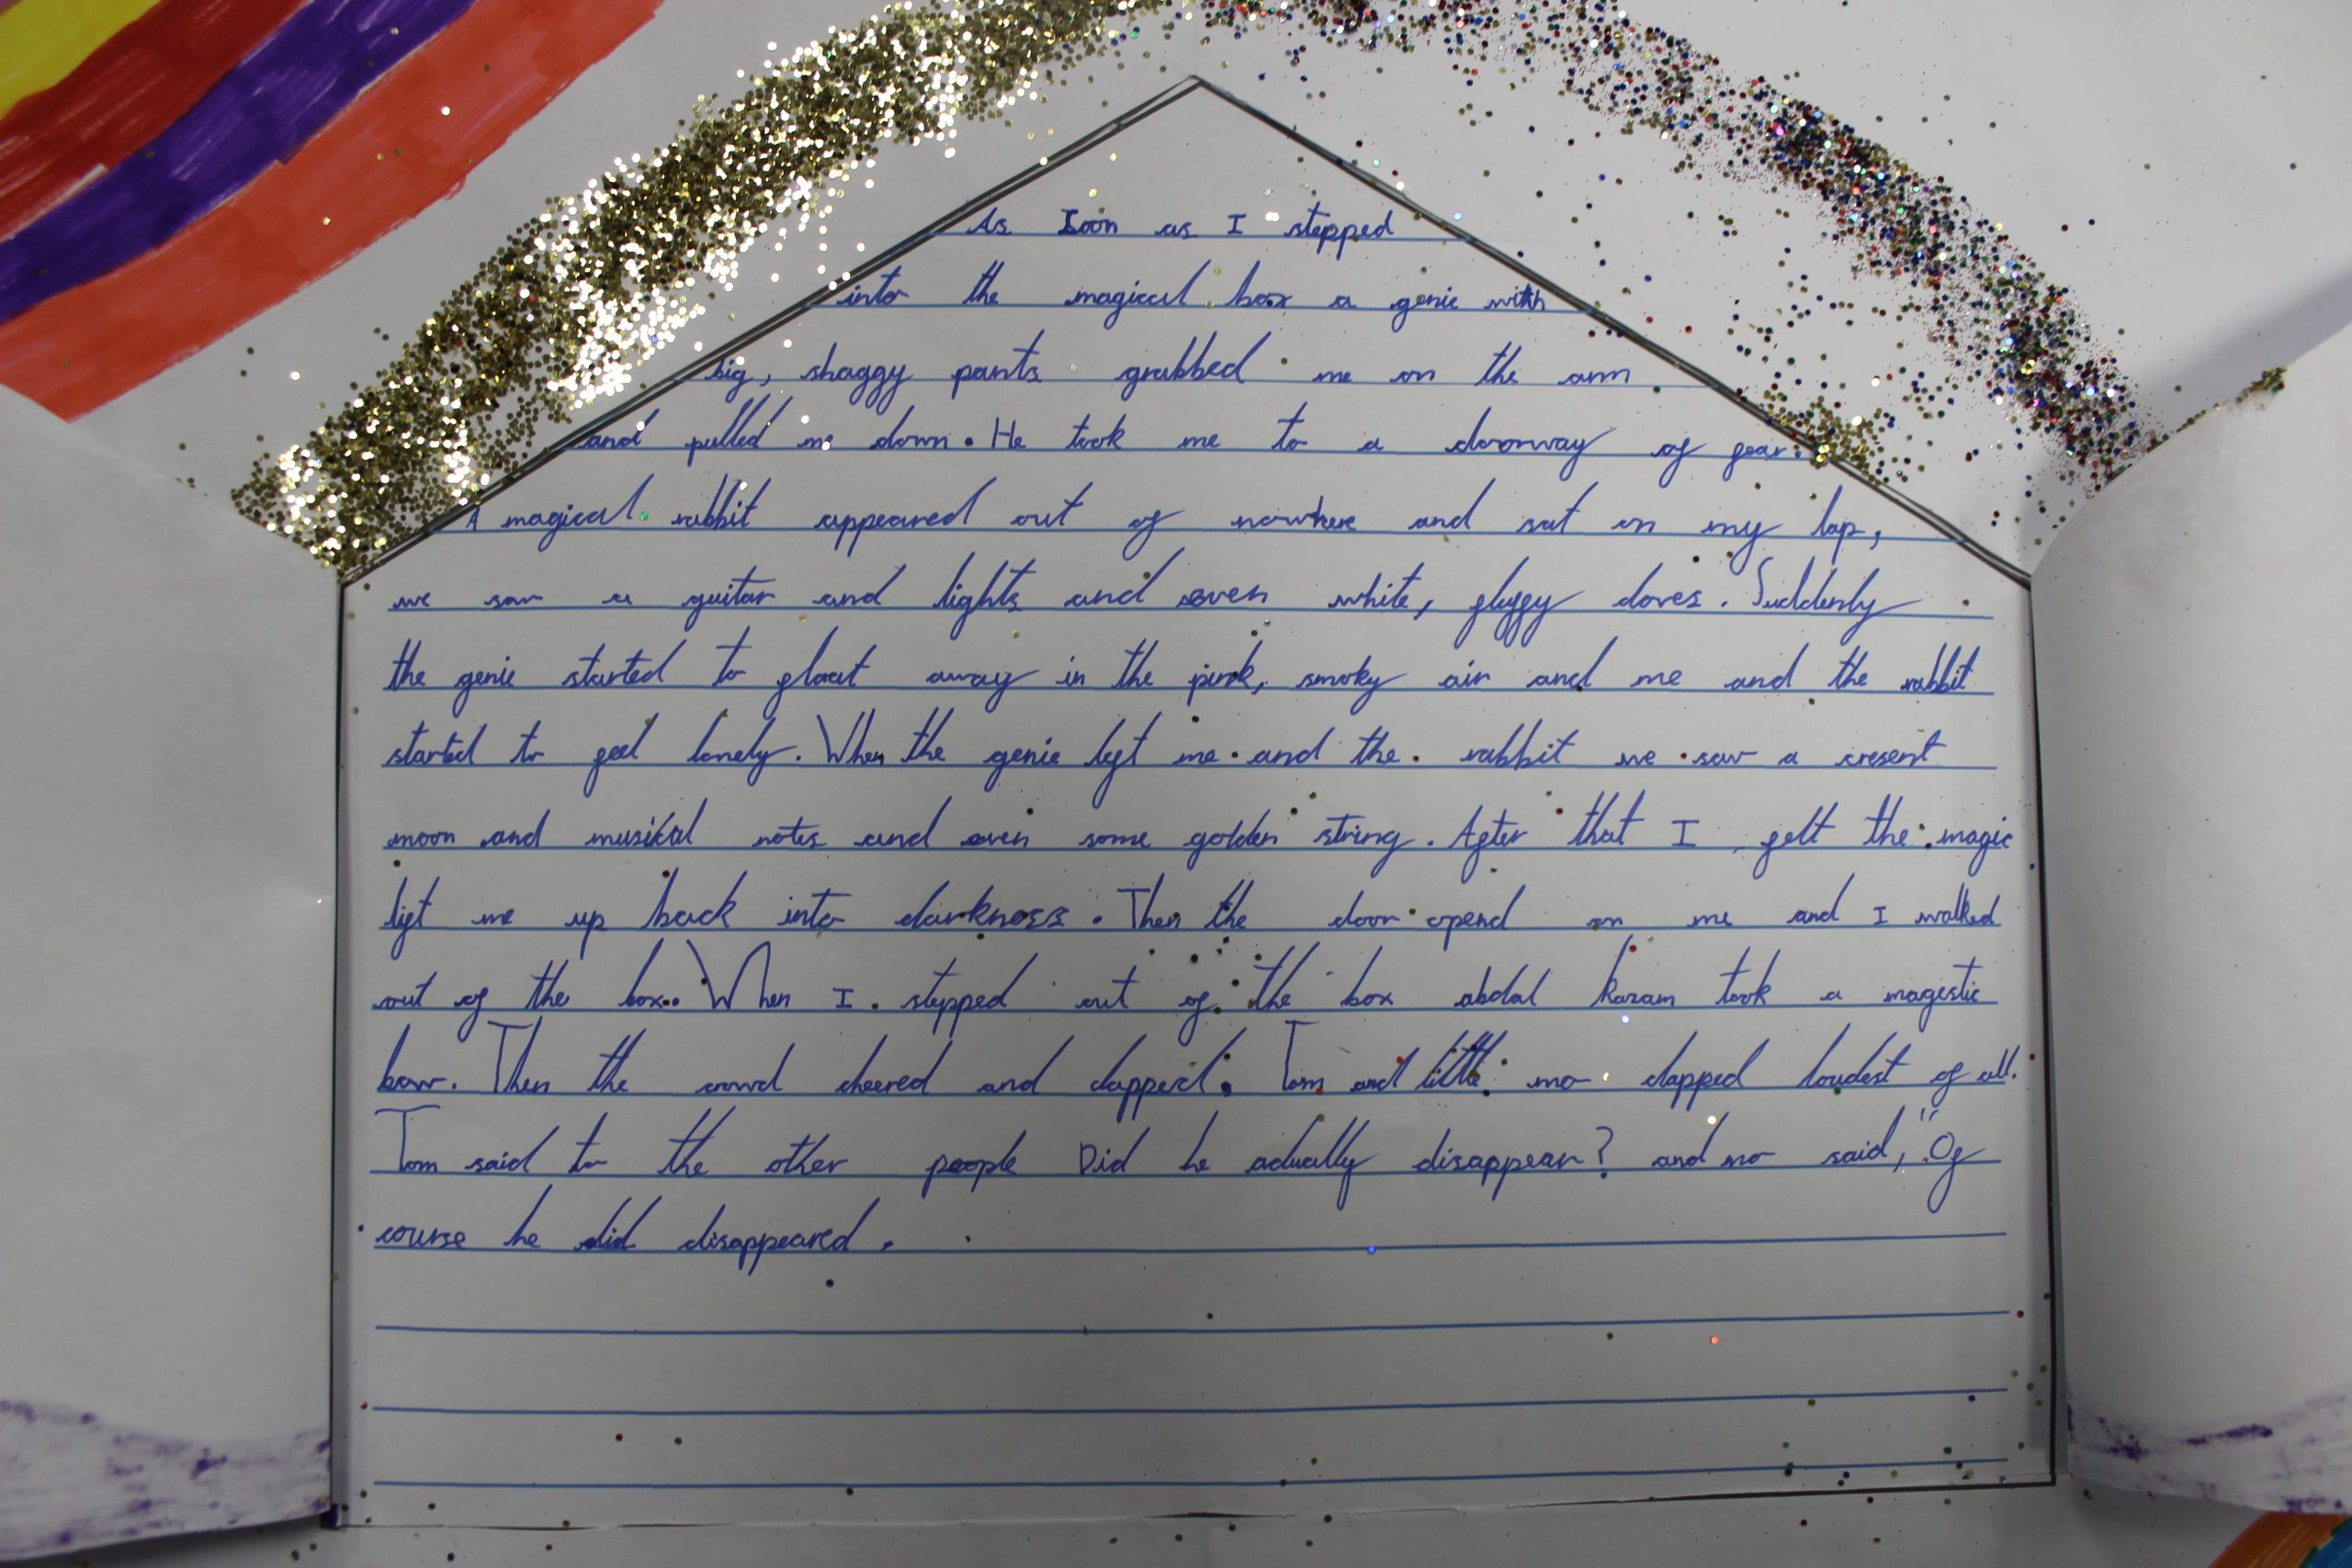 As Soon as I stepped
into the magical box a genie with
big, shaggy pants grabbed me on the arm
and pulled me down. He took me to a doorway of fear.
A magical rabbit appeared out of nowhere and sat on my lap,
we saw a guitar and lights and even white, fluffy doves. Suddenly
the genie started to float away in the pink, smoky air and me and the rabbit
started to feel lonely. When the genie left me and the rabbit we saw a cresent
moon and musikal notes and even some golden string. After that I felt the magic
lift me up back into darkness. Then the door opend on me and I walked
out of the box. When I stepped out of the box abdal kazam took a magestic
bow. Then the crowd cheered and clapped. Tom and little mo clapped loudest of all.
Tom said to the other people Did he actually disappear? and mo said, "Of
course he did disappeared.